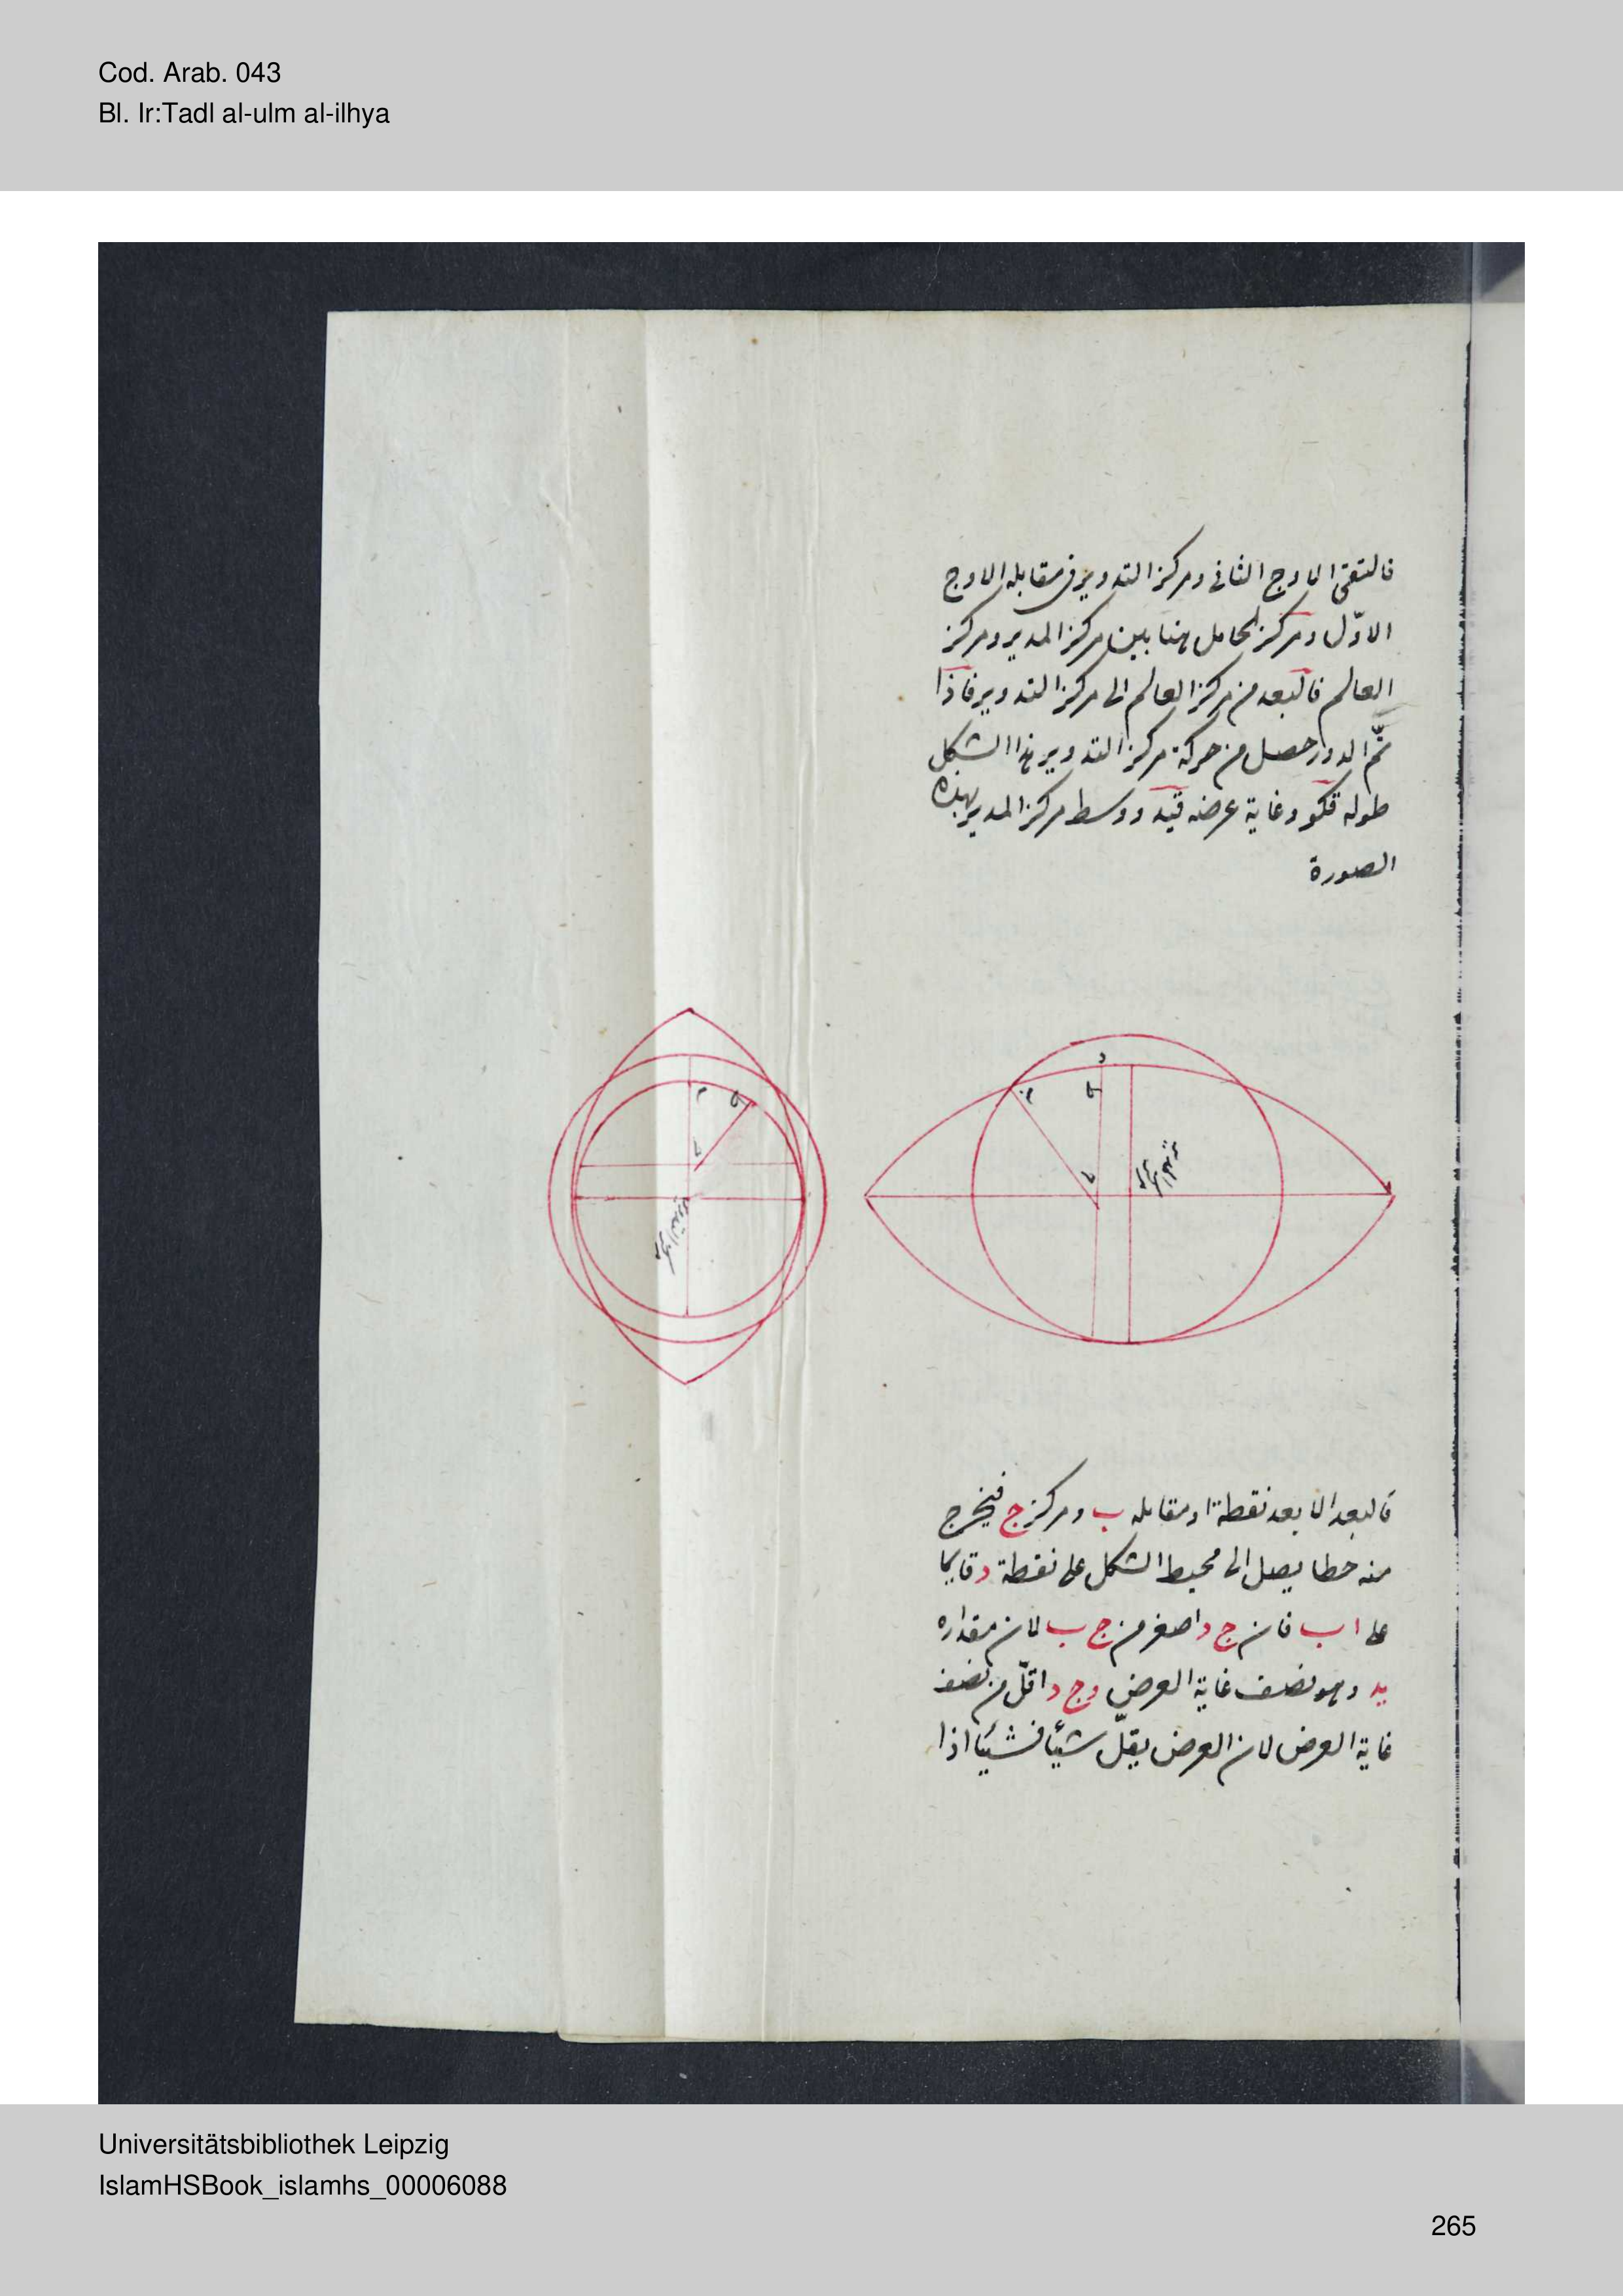 Cod. Arab. 043
Bl. Ir:Tadl al-ulm al-ilhya
فالتقى الاوج الثانى ومركز التدوير فى مقابلة الاوج
الاوّل ومركز الحامل هنا بين مركز المدير ومركز
العالم فالبعد من مركز العالم الى مركز التدوير فاذا
تمّ الدور حصل من حركة مركز التدوير هذا الشكل
طوله قكو وغاية عرضه قيد ووسط مركز المدير بهذه
الصورة
فالبعد الابعد نقطة ا ومقابله ب ومركز ج فيخرج
منه خطا يصل الى محيط الشكل على نقطة د قايما
على ا ب فان ج د اصغر من ج ب لان مقداره
يد وهو نصف غاية العرض و ج د اقلّ من نصف
غاية العرض لان العرض يقلّ شيئا فشيئا اذا
Universitätsbibliothek Leipzig
IslamHSBook_islamhs_00006088
265